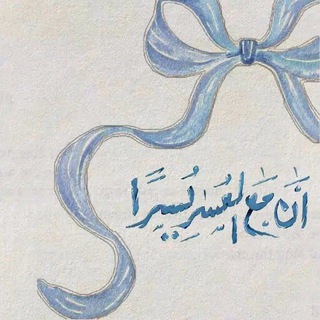 أنَّ مَع العُسرِ يُسرًا